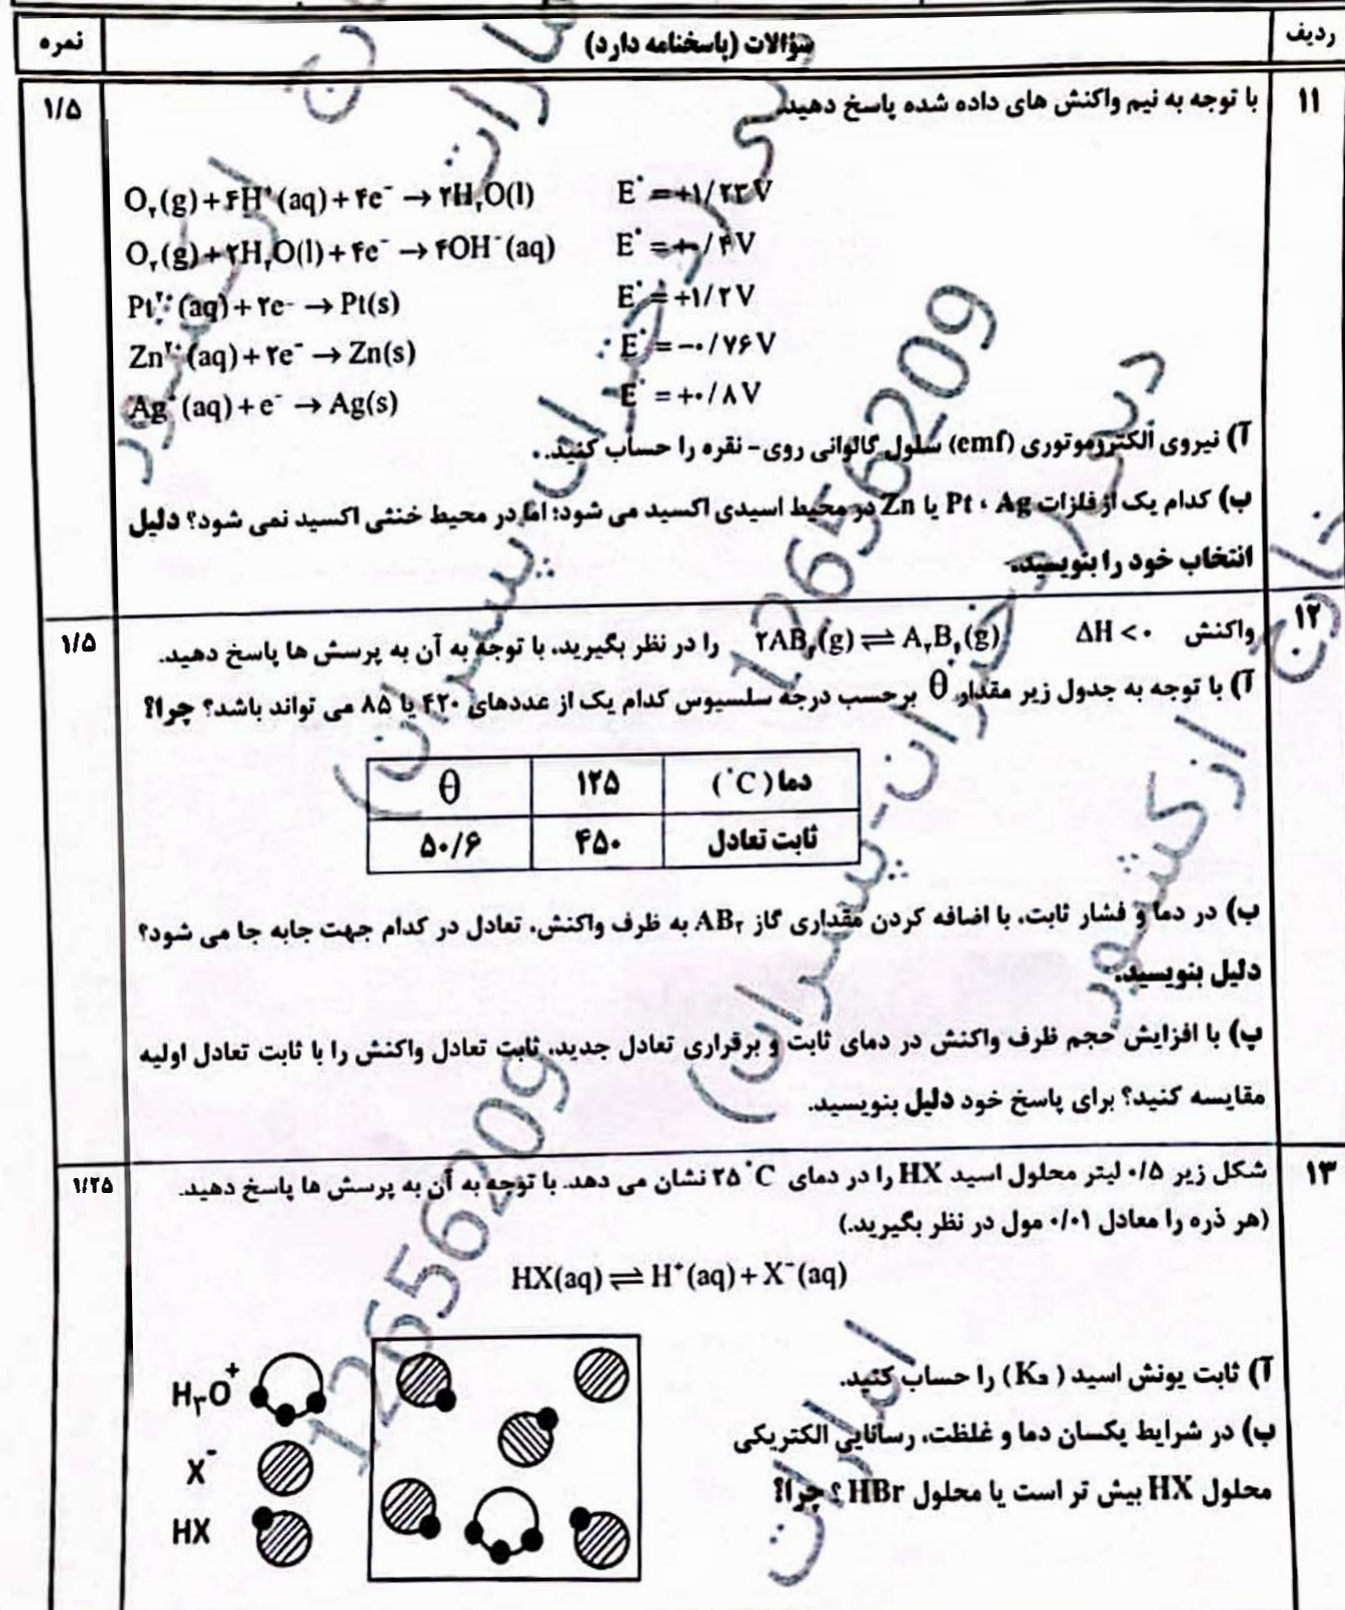 ردیف سؤالات (پاسخنامه دارد) نمره
۱۱ با توجه به نیم واکنش های داده شده پاسخ دهید. ۱/۵
O₂(g) + ۴H⁺(aq) + ۴e⁻ → ۲H₂O(l) E° = +۱/۲۳ V
O₂(g) + ۲H₂O(l) + ۴e⁻ → ۴OH⁻(aq) E° = +۰/۴ V
Pt²⁺(aq) + ۲e⁻ → Pt(s) E° = +۱/۲ V
Zn²⁺(aq) + ۲e⁻ → Zn(s) E° = −۰/۷۶ V
Ag⁺(aq) + e⁻ → Ag(s) E° = +۰/۸ V
آ) نیروی الکتروموتوری (emf) سلول گالوانی روی- نقره را حساب کنید.
ب) کدام یک از فلزات Pt ، Ag یا Zn در محیط اسیدی اکسید می شود؛ اما در محیط خنثی اکسید نمی شود؟ دلیل
انتخاب خود را بنویسید.
۱۲ واکنش ΔH < ۰ ۲AB₂(g) ⇌ A₂B₄(g) را در نظر بگیرید، با توجه به آن به پرسش ها پاسخ دهید. ۱/۵
آ) با توجه به جدول زیر مقدار θ برحسب درجه سلسیوس کدام یک از عددهای ۴۲۰ یا ۸۵ می تواند باشد؟ چرا؟
دما (°C) ۱۲۵ θ
ثابت تعادل ۴۵۰ ۵۰/۶
ب) در دما و فشار ثابت، با اضافه کردن مقداری گاز AB₂ به ظرف واکنش، تعادل در کدام جهت جابه جا می شود؟
دلیل بنویسید.
پ) با افزایش حجم ظرف واکنش در دمای ثابت و برقراری تعادل جدید، ثابت تعادل واکنش را با ثابت تعادل اولیه
مقایسه کنید؟ برای پاسخ خود دلیل بنویسید.
۱۳ شکل زیر ۰/۵ لیتر محلول اسید HX را در دمای ۲۵ °C نشان می دهد. با توجه به آن به پرسش ها پاسخ دهید. ۱/۲۵
(هر ذره را معادل ۰/۰۱ مول در نظر بگیرید.)
HX(aq) ⇌ H⁺(aq) + X⁻(aq)
H₃O⁺
X⁻
HX
آ) ثابت یونش اسید (Ka) را حساب کنید.
ب) در شرایط یکسان دما و غلظت، رسانایی الکتریکی
محلول HX بیش تر است یا محلول HBr ؟ چرا؟
دبیرخانه
12656209
12656209
از کشور
امارات